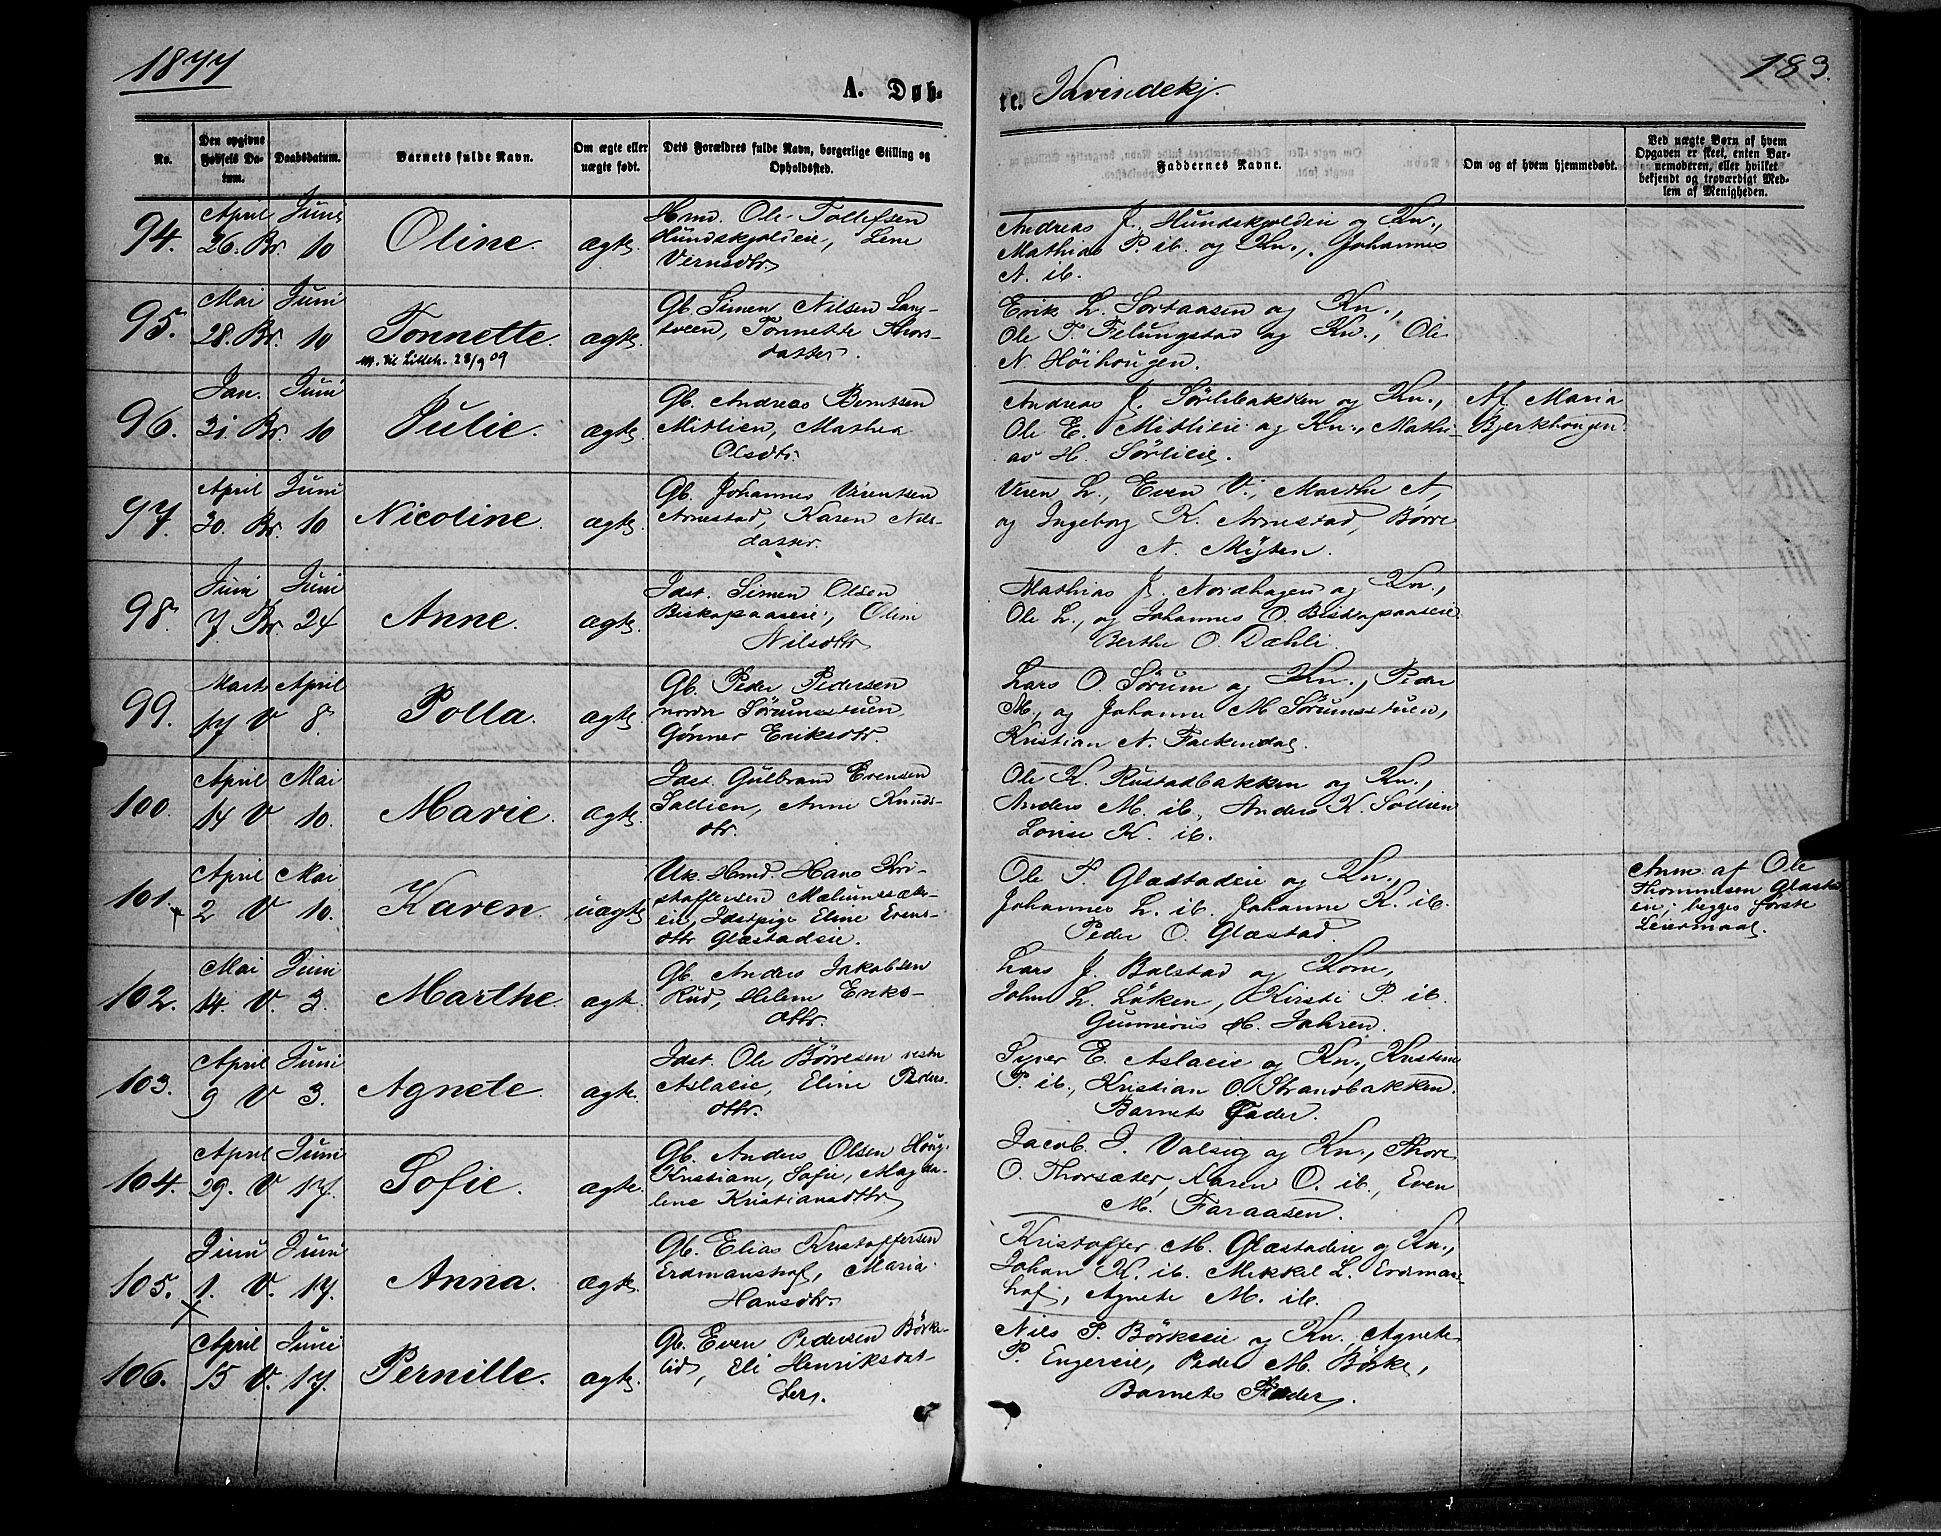 1877
183.
A. Døb-
te. Kvindekj.
No.
Den opgivne Fødsels Datum.
Daabsdatum.
Barnets fulde Navn.
Om ægte eller uægte født.
Dets Forældres fulde Navn, borgerlige Stilling og Opholdssted.
Faddernes Navne.
Om og af hvem hjemmedøbt.
Ved uægte Børn af hvem Opgaven er skeet, enten Barnemoderen, eller hvilket bekjendt og troværdigt Medlem af Menigheden.
94. April 26. Br. Juni 10 Oline. ægte.
Hmd. Ole Tollefsen
Hundskjoldeie, Lene
Vernsdtr.
Andreas J. Hundskjoldeie og Kn.,
Mathias P. ib. og Kn., Johannes
N. ib.
95. Mai 28. Br. Juni 10 Tonnette. ægte.
28/9 09
Gb. Simen Nilsen Lang-
sveen, Tonnette Thors-
datter.
Erik L. Sortaasen og Kn.,
Ole T. Felungstad og Kn., Ole
N. Höihougen.
96. Jan. 31. Br. Juni 10 Julie. ægte.
Gb. Andreas Berntsen
Mitlien, Mathea
Olsdtr.
Andreas J. Sørlibakken og Kn.,
Ole E. Mitlieie og Kn., Mathi-
as H. Sørlieie.
Af Maria
Bjerkhougen
97. April 30. Br. Juni 10 Nicoline. ægte.
Gb. Johannes Verentsen
Arnestad, Karen Nils-
datter.
Veren L., Even V., Marthe A,
og Ingeborg K. Arnestad, Børre
N. Myhen.
98. Juni 7 Br. Juni 24 Anne. ægte.
Idst. Simen Olsen
Biskopaaseie, Oline
Nilsdtr.
Mathias J. Nordhagen og Kn.,
Ole L., og Johannes O. Biskopaaseie
Berthe O. Dæhli.
99. Marts 17 V April 8. Polla. ægte.
Gb. Peder Pedersen
nordre Sörumsstuen,
Gönner Eriksdtr.
Lars O. Sörum og Kn., Peder
M., og Johanne M Sörumsstuen,
Kristian N. Falkendal.
100. April 14 V Mai 10. Marie. ægte.
Idst. Gulbrand Evensen
Sollien, Anne Knuds-
dtr.
Ole K. Rustadbakken og Kn.,
Anders M. ib., Anders K. Sollien
Lovise K. ib.
101. April 2 V Mai 10. Karen. uægte.
Uk. Hmd. Hans Kri-
stoffersen Mælumsæter-
eie, Idstpige Eline Evens-
dtr Glæstadeie.
Ole P. Glæstadeie og Kn.,
Johannes L. ib. Johanne K. ib.
Peder O. Glæstad.
Anm. af Ole
Thommesen Glæsta-
eie; begges förste
Leiermaal.
102. Mai 14. V. Juni 3. Marthe. ægte.
Gb. Anders Jakobsen
Rud, Helene Eriks-
dtr.
Lars J. Balstad og Kone,
John L. Löken, Kirsti P. ib.
Gunnerius H. Jahren.
103. April 9 V Juni 3. Agnete. ægte.
Idst. Ole Börresen vestre
Aslaeie, Eline Peders-
dtr.
Syver E. Aslaeie og Kn., Kristine
P. ib., Kristian O. Strandbakken.
Barnets Fader.
104. April 29. V Juni 17. Sofie. ægte.
Gb. Anders Olsen Houg,
Kristiane, Sofie, Magda-
lene Kristiansdtr
Jacob. J. Valsig og Kn., Thore
O. Thorsæter, Karen O. ib., Even
M. Faraasen.
105. Juni 1. V. Juni 17. Anna. ægte.
Gb. Elias Kristoffersen
Erdmanshof, Maria
Hansdtr.
Kristoffer M. Glæstadeie og Kn.,
Johan K. ib. Mikkel L. Erdmans-
hof, Agnete M. ib.
106. April 15 V. Juni 17. Pernille. ægte.
Gb. Even Pedersen Börke-
lid, Eli Henriksdat-
ter.
Nils P. Börkeeie og Kn. Agnete
P. Engereie, Peder M. Börke,
Barnets Fader.